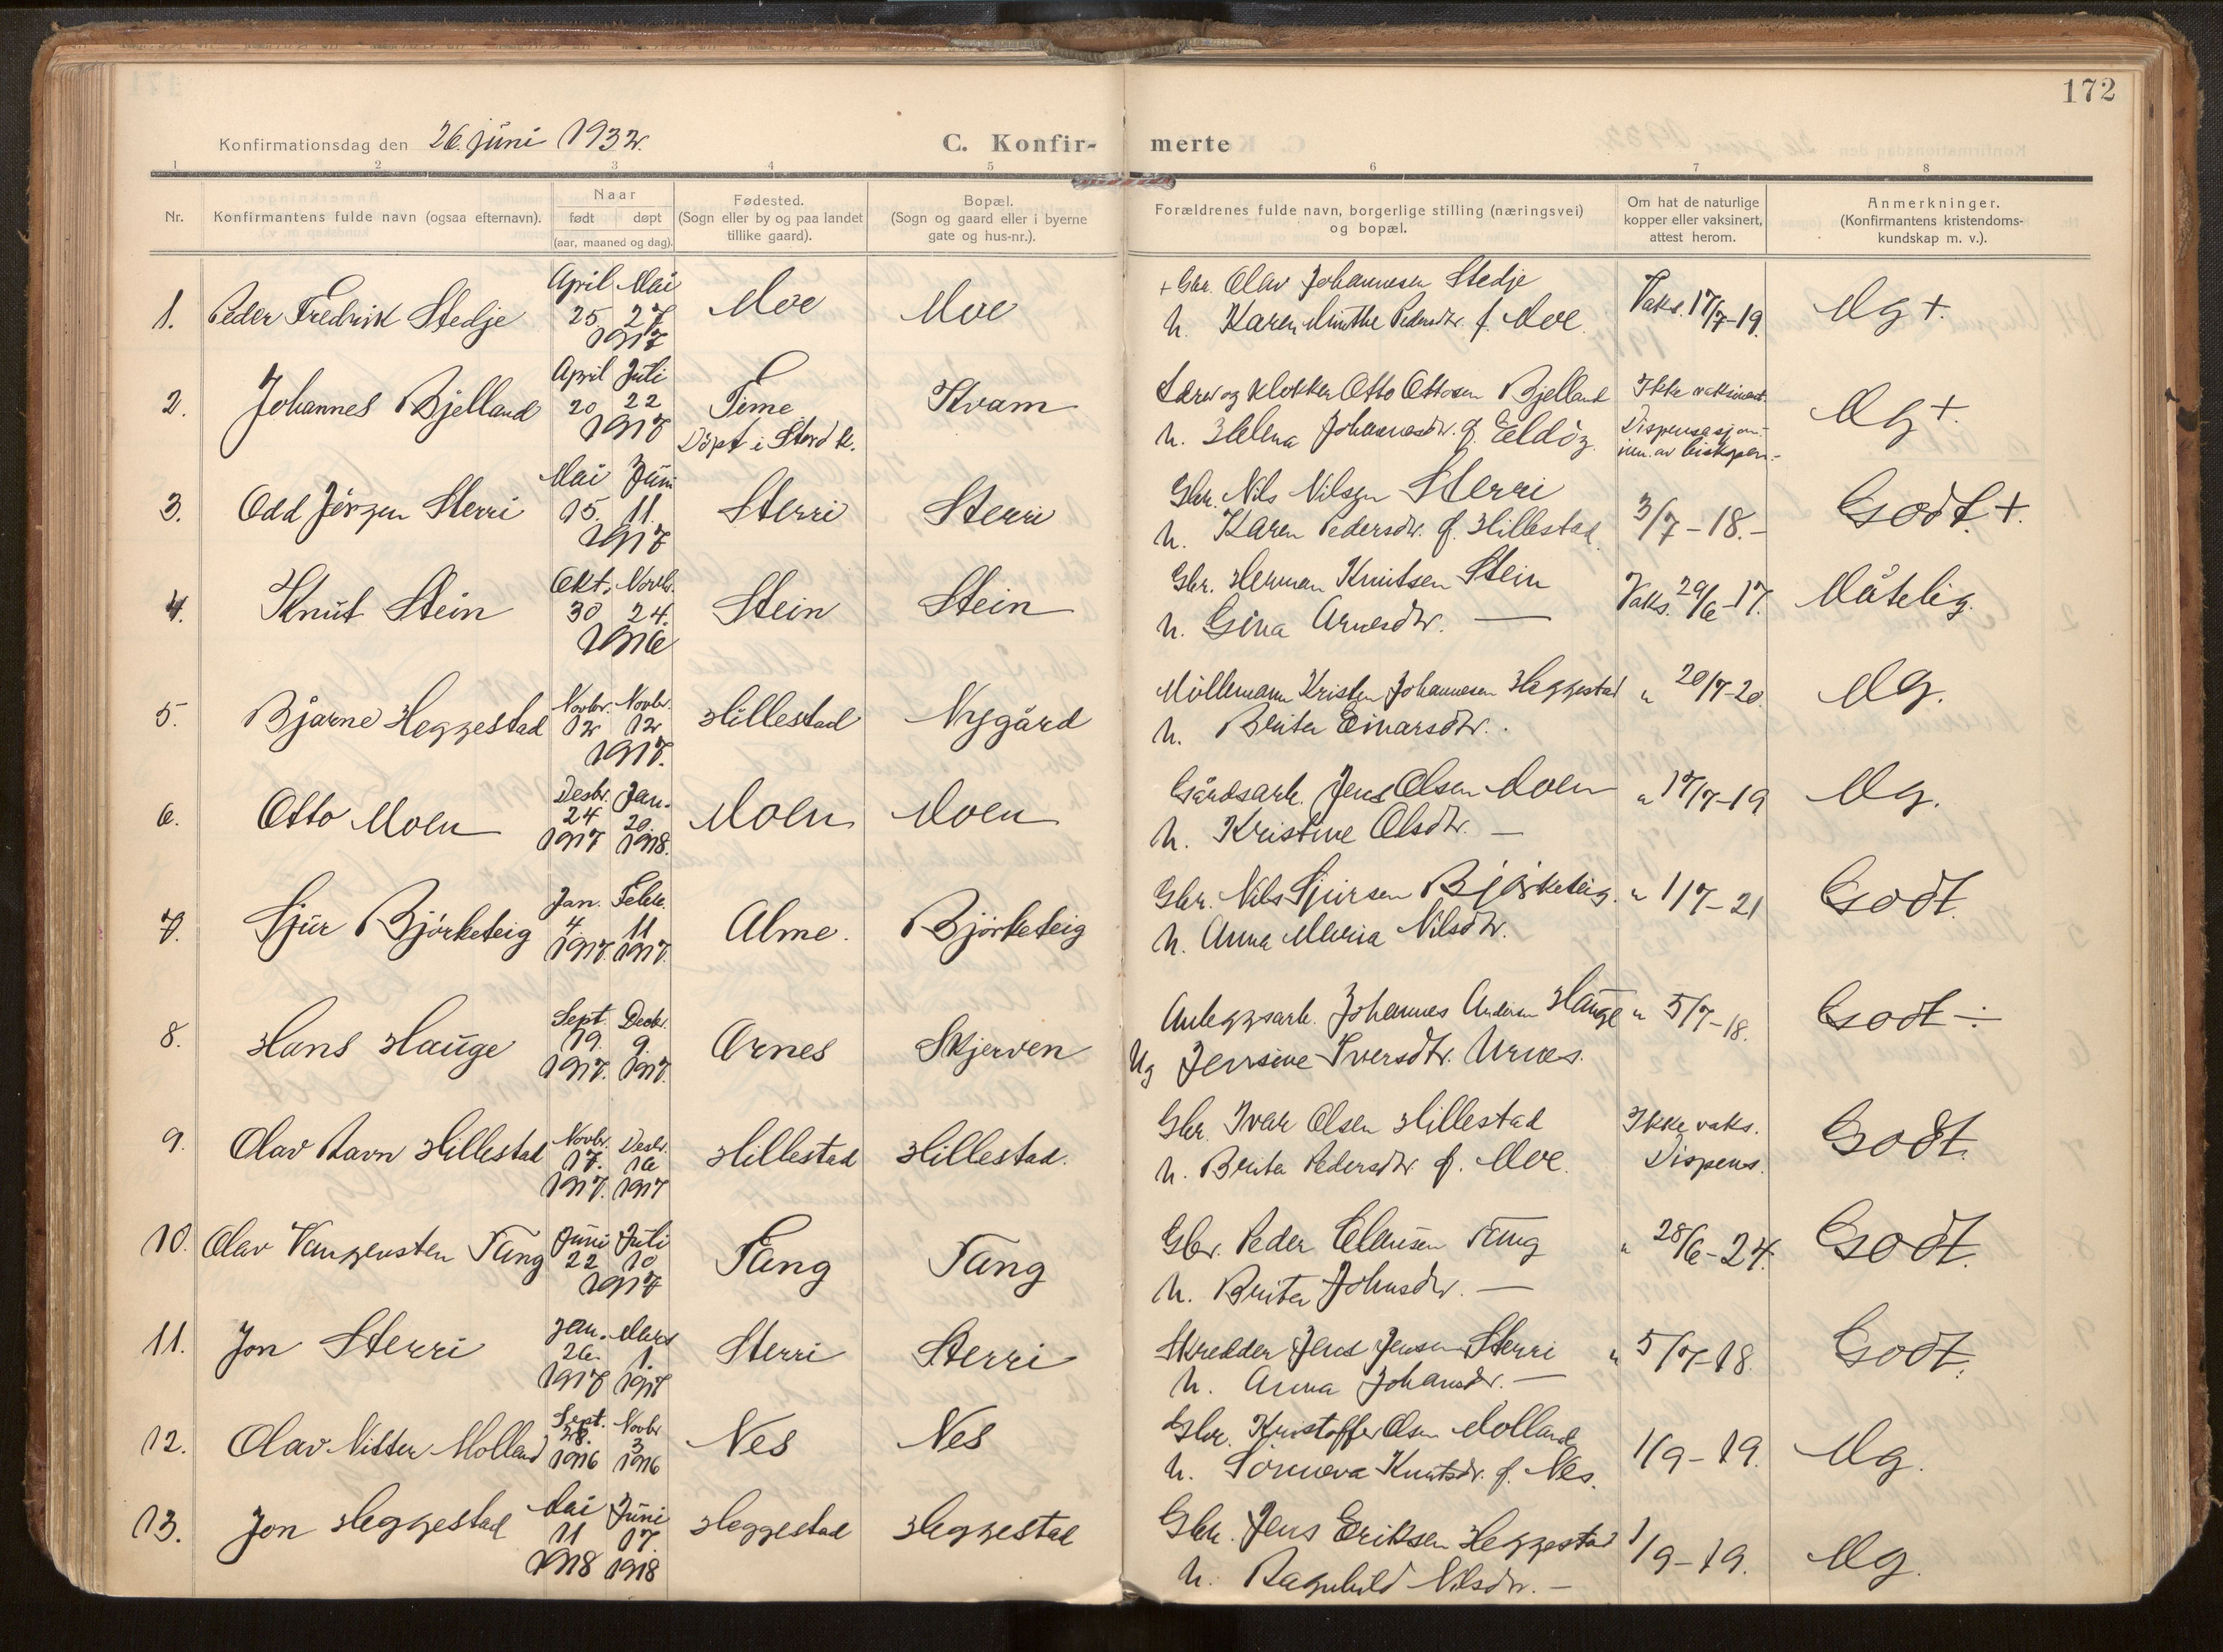 172
Konfirmationsdag den 26. juni 1932.
C. Konfirmerte
1 2 3 4 5 6 7 8
Nr. Konfirmantens fulde navn (ogsaa efternavn). Naar født døpt (aar, maaned og dag). Fødested. (Sogn eller by og paa landet tillike gaard). Bopæl. (Sogn og gaard eller i byerne gate og hus-nr.). Forældrenes fulde navn, borgerlige stilling (næringsvei) og bopæl. Om hat de naturlige kopper eller vaksinert, attest herom. Anmerkninger. (Konfirmantens kristendoms-kundskap m. v.).
1. Peder Fredrik Stedje April 25 Mai 27. 1917 Moe Moe + Gbr. Olav Johannesen Stedje
h. Karen Minthe Pedersdtr. f. Moe. Vaks. 17/7-19. Mg +.
2. Johannes Bjelland April 20 Juli 22 1917 Time Döpt i Stord k. Kvam Lærer og klokker Otto Ottosen Bjelland
h. Helena Johannesdtr. f. Eldöy. Ikke vaksinert. Dispensasjon av biskopen.- Mg +.
3. Odd Jörgen Sterri Mai 15. Juni 11. 1917 Sterri Sterri Gbr. Nils Nilsen Sterri
h. Karen Pedersdtr. f. Hillestad. 3/7-18.- Godt +.
4. Knut Stein Okt. 30 Novbr. 24. 1916 Stein Stein Gbr. Herman Knutsen Stein
h. Gina Arnesdtr. — Vaks. 29/6-17. Måtelig.
5. Bjarne Heggestad Novbr. 12 Novbr. 12 1917. Hillestad Nygård Möllemann Kristen Johannesen Heggestad
h. Brita Einarsdtr. . " 20/7-20. Mg.
6. Otto Moen Desbr. 24 1917 Jan. 20. 1918. Moen Moen Gårdsarb. Jens Olsen Moen
h. Kristine Olsdtr. — " 17/7-19 Mg.
7. Sjur Björketeig Jan. 4. 1917. Febr. 11 1917. Alme. Björketeig Gbr. Nils Sjursen Björketeig.
h. Anna Maria Nilsdtr. " 1/7-21 Godt.
8. Hans Hauge Sept. 19. 1917. Desbr. 9. 1917. Ornes Skjerven Anleggsarb. Johannes Andersen Hauge
Ug Jensine Iversdtr. Urnes. " 5/7-18. Godt ÷
9. Olav Ravn Hillestad Novbr. 17. 1917. Desbr. 16 1917 Hillestad Hillestad. Gbr. Ivar Olsen Hillestad
h. Brita Pedersdtr. f. Moe. Ikke vaks. Dispens. Godt.
10. Olav Vangensten Tang Juni 22 Juli 10 1917 Tang Tang Gbr. Peder Clausen Tang
h. Brita Johnsdtr. — " 28/6-24. Godt.
11. Jon Sterri Jan. 26. 1917 Mars 1. 1917 Sterri Sterri Skredder Jens Jensen Sterri
h. Anna Johansdr. — " 5/7-18. Godt.
12. Olav Nitter Molland Sept. 28. 1916 Novbr 3 1916 Nes Nes Gbr. Kristoffer Olsen Molland
h. Sönneva Knutsdr. f. Nes. 1/9-19. Mg.
13. Jon Heggestad Mai 11 1918 Juni 17. 1918 Heggestad Heggestad Gbr. Jens Eriksen Heggestad
h. Ragnhild Nilsdtr. — 1/9-19. Mg.